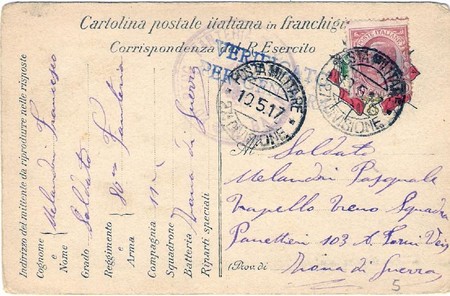 Cartolina postale italiana in franchigia
Corrispondenza del R. Esercito
VERIFICATO
POSTA MILITARE
10.5.17
DIVISIONE
POSTA MILITARE
DIVISIONE
Indirizzo del mittente da riprodurre nelle risposte
Cognome e Nome Melandri Francesco
Grado Soldato
Reggimento e Arma 80mo Fanteria
Compagnia 11
Squadrone
Batteria Zona di Guerra
Riparti speciali
Al Soldato
Melandri Pasquale
Treno Squadra
Panettieri 103 Forni
(Prov. di Zona di Guerra
5